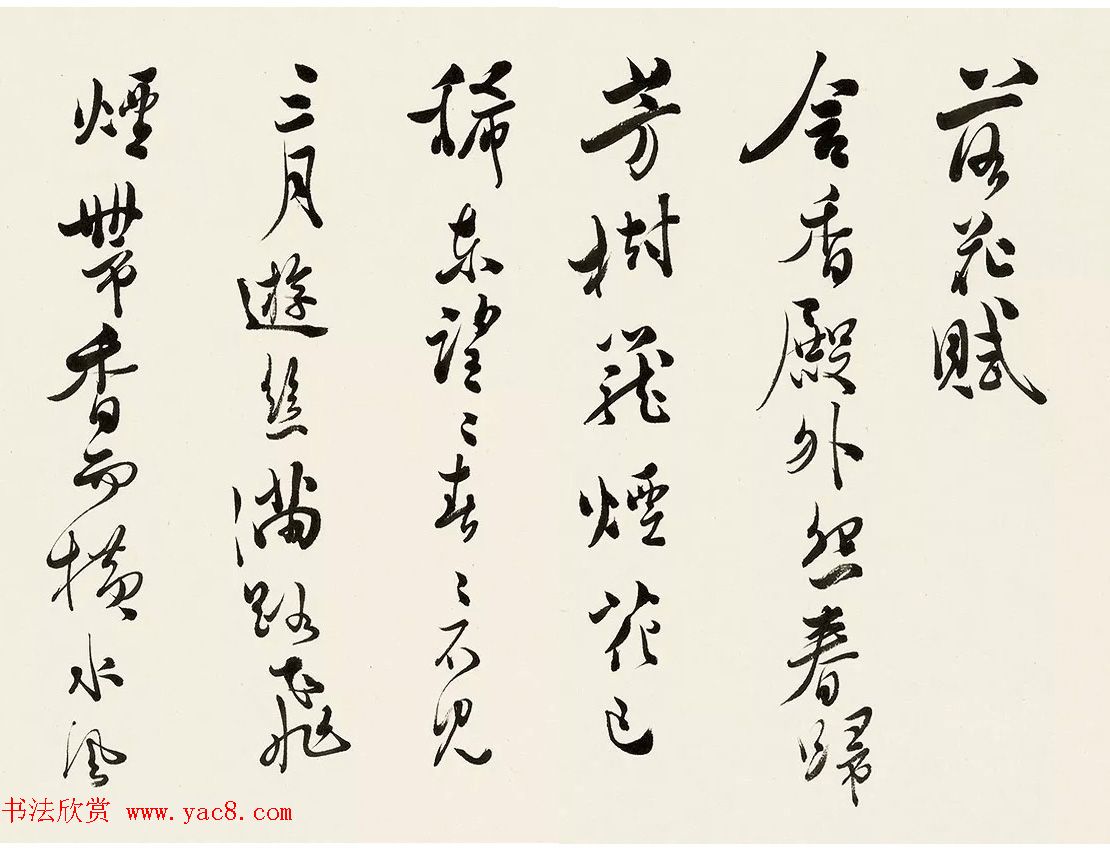 落花賦
含香殿外怨春歸
芳樹籠煙花已
稀東望〻春〻不見
三月遊絲滿路飛
煙帶香而橫水風
书法欣赏 www.yac8.com